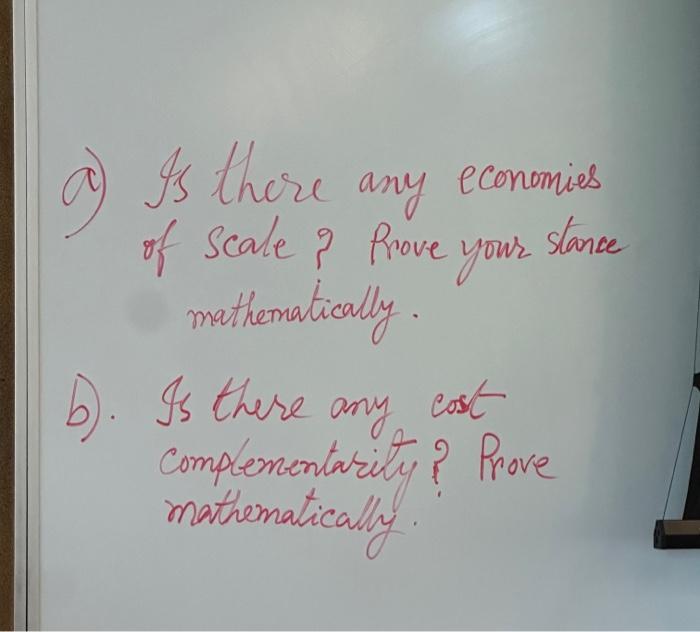 a) Is there any economies
of scale ? Prove your stance
mathematically.
b). Is there any cost
complementarity ? Prove
mathematically.